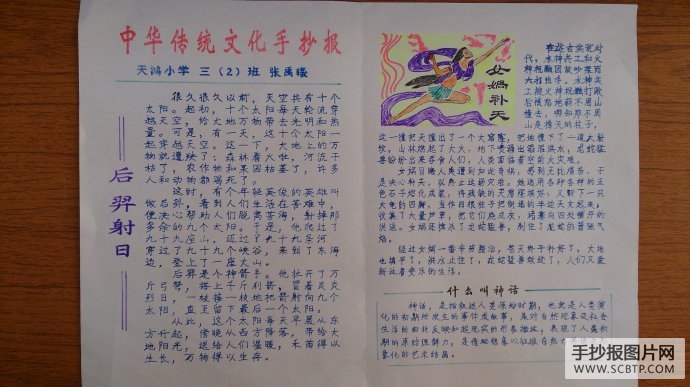 中华传统文化手抄报
天鸿小学 三（2）班 张禹曦
后羿射日
很久很久以前，天空共有十个
太阳。起初，十个太阳每天轮流穿
越天空，给大地万物带去光明和热
量。可是，有一天，这十个太阳一
起穿越天空。这一下，大地上的万
物就遭殃了：森林着火啦，河流干
枯了，农作物和果园枯萎了，许多
人和动物都渴死了。
这时，有个年轻英俊的英雄叫
做后羿，看到人们生活在苦难中，
便决心帮助人们脱离苦海，射掉那
多余的九个太阳。于是，他爬过了
九十九座山，迈过了九十九条河
穿过了九十九个峡谷，来到了东海
边，登上了一座大山。
后羿是个神箭手。他拉开了万
斤弓弩，搭上千斤利箭，冒着炎炎
烈日，一枝接一枝地把箭射向九个
太阳，直至留下最后一个太阳。
从此，这个太阳每天早晨从东
方升起，傍晚从西方降落，带给大
地阳光，送给人们温暖，禾苗得以
生长，万物得以生存。
女娲补天
代，水神共工和火
神祝融因故吵架而
大打出手。水神共
工被火神祝融打败
后愤怒地朝不周山
撞去，哪知那不周
山是撑天的柱子，
这一撞把天撞出了一个大窟窿，把地撞下了一道大裂
纹，山林燃起了大火，地下喷涌出滔滔洪水，龙蛇猛
兽纷纷出来吞食人们，人类面临着空前大灾难。
女娲目睹人类遭到如此奇祸，感到无比痛苦，于
是决心补天，以终止这场灾难。她选用各种各样的五
色石子熔化成浆，将残缺的天窟窿补好，又斩下一只
大龟的四脚，当作四根柱子把倒塌的半边天支起来，
收集了大量芦草，把它们烧成灰，堵塞向四处铺开的
洪流。女娲还擒杀了龙蛇猛兽，刹住了龙蛇的嚣张气
焰。
经过女娲一番辛劳整治，苍天终于补好了，大地
也填平了，洪水止住了，龙蛇猛兽敛迹了，人们又重
新过着安乐的生活。
什么叫神话
神话，是指叙述人类原始时期，也就是人类演
化的初期所发生的事件或故事，是对自然现象及社会
生活的曲折反映和超现实的形象描述，表现了人类初
期的原始理解力，是借助想象以征服自然
象化的艺术结晶。
手抄报图片网
WWW.SCBTP.COM